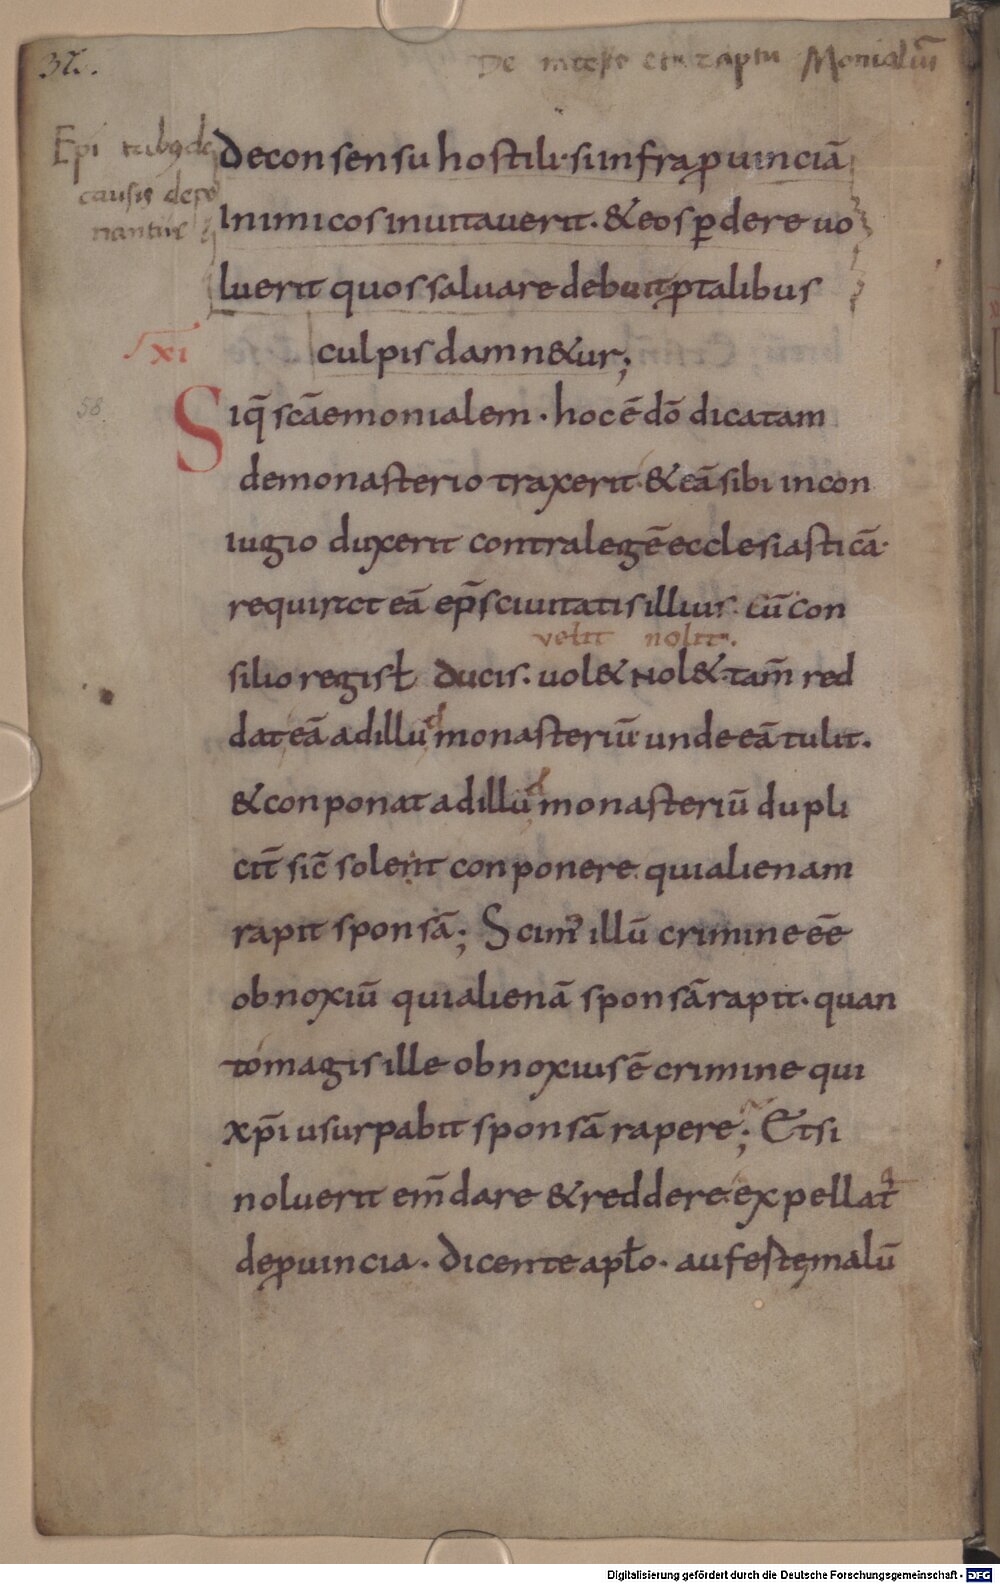 32.
De incestu et raptu Monialiū
Epī quibus de
causis depo
nantur
de consensu hostili· si infra ꝓuinciā
Inimicos inuitauerit· & eos ꝑdere uo
luerit quos saluare debuit ꝓ talibus
culpis damn&ur;
XI
58
Siq̄ scāemonialem· hoc ē dō dicatam
de monasterio traxerit & eā sibi in con
iugio duxerit contra legē ecclesiasticā·
requirat eā ep̄s ciuitatis illius· cū con
velit nolit.
silio regis ł ducis· uol& Nol& tam̄ red
dat eā ad illud monasteriū unde eā tulit.
& conponat ad illud monasteriū dupli
cit̄ sic̄ solent conponere qui alienam
rapit sponsā; Scim' illū crimine eē
obnoxiū qui alienā sponsā rapit· quan
to magis ille obnoxius ē crimine qui
xp̄i usurpabit sponsā rapere; Et si
noluerit em̄dare & reddere expellat̄
de ꝓuincia· dicente apło· auferte malū
Digitalisierung gefördert durch die Deutsche Forschungsgemeinschaft - DFG